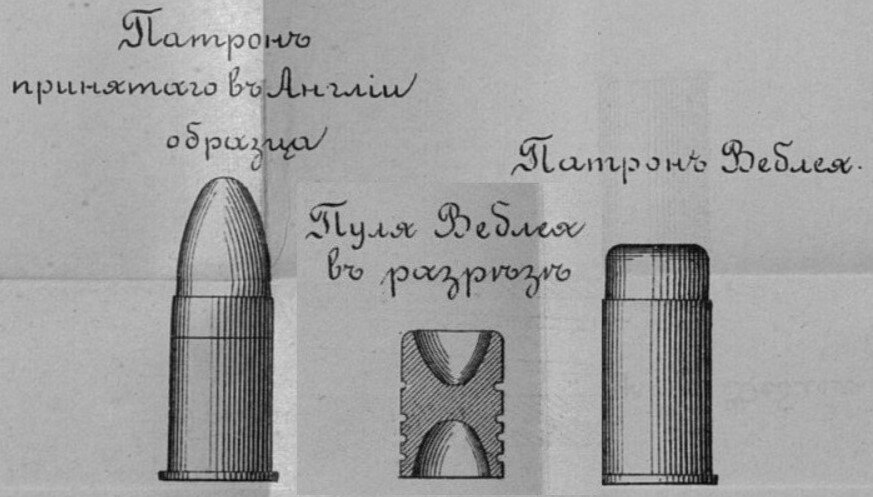 Патронъ
принятаго въ Англіи
образца
Пуля Веблея
въ разрѣзѣ
Патронъ Веблея.